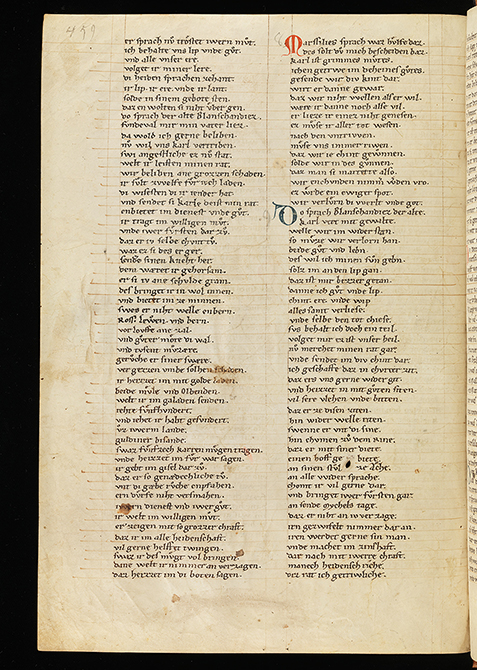 er sprach nv trostet iwern mvt.
ich behalte vns lip vnde gvt.
vnd alle vnser ere.
volget ir miner lere.
di heiden sprachen zehant.
ir lip. ir ere. vnde ir lant.
solde in sinem gebote sten.
daz en wolten si niht vber gen.
Do sprach der alte Blanschandiez.
sendeval mit min vater liez.
da wold ich gerne beliben.
nv wil vns karl vertriben.
swi angestliche ez nv stat.
welt ir leisten minen rat.
wir beliben ane grozzen schaden.
ir svlt zwelfe fvr iwch laden.
di wisesten di ir iender hat.
vnd sendet si karle deist min rat
enbietet im dienest vnde gvt.
ir tragt im willigen mvt.
vnde swer fvrsten dar zv.
daz er iv selbe chvnt tv.
waz ez si des er ger.
sende sinen kneht her.
dem waret ir gehorsam.
er si iv ane schvlde gram.
des bringet ir in wol innen.
vnd bietet im ze minnen.
swes er niht welle enbern.
Ross lewen vnd bern.
vorloufte ane zal.
vnd gvter more di wal.
vnd tvsent mvzere.
gervche er siner swere.
vergezzen vmbe solhen schaden.
ir heizzet im mit golde laden.
beide mvle vnd olbenden.
welt ir im galaden senden.
zehte fvnfhvndert.
vnd iehet ir habt gesvndert.
vz iwerm lande.
guldiner bisande.
swaz fvnfzech karren mvgen tragen.
vnde heizzet im fvr war sagen.
ir gebt im gisel dar zv.
daz er so genædechliche tv.
vnt di gabe rvche enpfahen.
ern dvrfe niht versmahen.
iwern dienest vnd iwer gvt.
ir welt im willigen mvt.
erzeigen mit so grozzer chraft.
daz ir im alle heidenschaft.
vil gerne helffet twingen.
swaz ir des mvgt vol bringen.
dane welt ir nimmer an verzagen.
daz heizzet im di boten sagen.
Marssilies sprach waz hvlfe daz.
des solt dv mich bescheiden baz.
karl ist grimmes mvtes.
ichen getrwe im deheines gvtes.
gesende wir div kint dar.
wirt er danne gewar.
daz wir niht wellen als er wil.
were ir danne noch als vil.
er lieze ir einez niht genesen.
ez mvse ir aller tot wesen.
nach den vntriwen.
mvse vns immer riwen.
daz wir ie chint gewunnen.
solde wir in des gunnen.
daz man si martette also.
wir enchunden nimmer werden vro.
ez wurde ein ewiger spot.
wir verlurn di werlt vnde got.
Do sprach Blanschandiez der alte.
karl vert mit gewalte.
welle wir im wider stan.
so mvze wir verlorn han.
beide gvt vnd lebn.
des wil ich minen svn gebn.
solz im an den lip gan.
daz ist mir bezzer getan.
danne ich gvt vnde lip.
chint. ere vnde wip
alles samt verliese.
vnde selbe den tot chiese.
svs behalt ich doch ein teil.
volget mir ez ist vnser heil.
nv merchet minen rat gar.
vnde sendet im div chint dar.
ich geschaffe daz in churzer zit.
daz ers vns gerne wider git.
vnd heizzet in mit gvten siten.
vil sere vlehen vnde bitten.
daz er ze disen ziten.
hin wider welle riten.
swenne er vnt di sine.
hin chvmen zv dem Rine.
daz er mit siner diete.
einen hof ge biete.
an sinen stvl ze ache.
an alle wider sprache.
chomt ir vil gerne dar.
vnd bringet iwer fvrsten gar
an sende Mychels tage.
daz er niht an iv verzage.
irn gezwifelt nimmer dar an.
iren werdet gerne sin man.
vnde machet im zinshaft.
dar nach mit iwerre chraft.
manech heidensch riche.
det rat ich getriwliche.